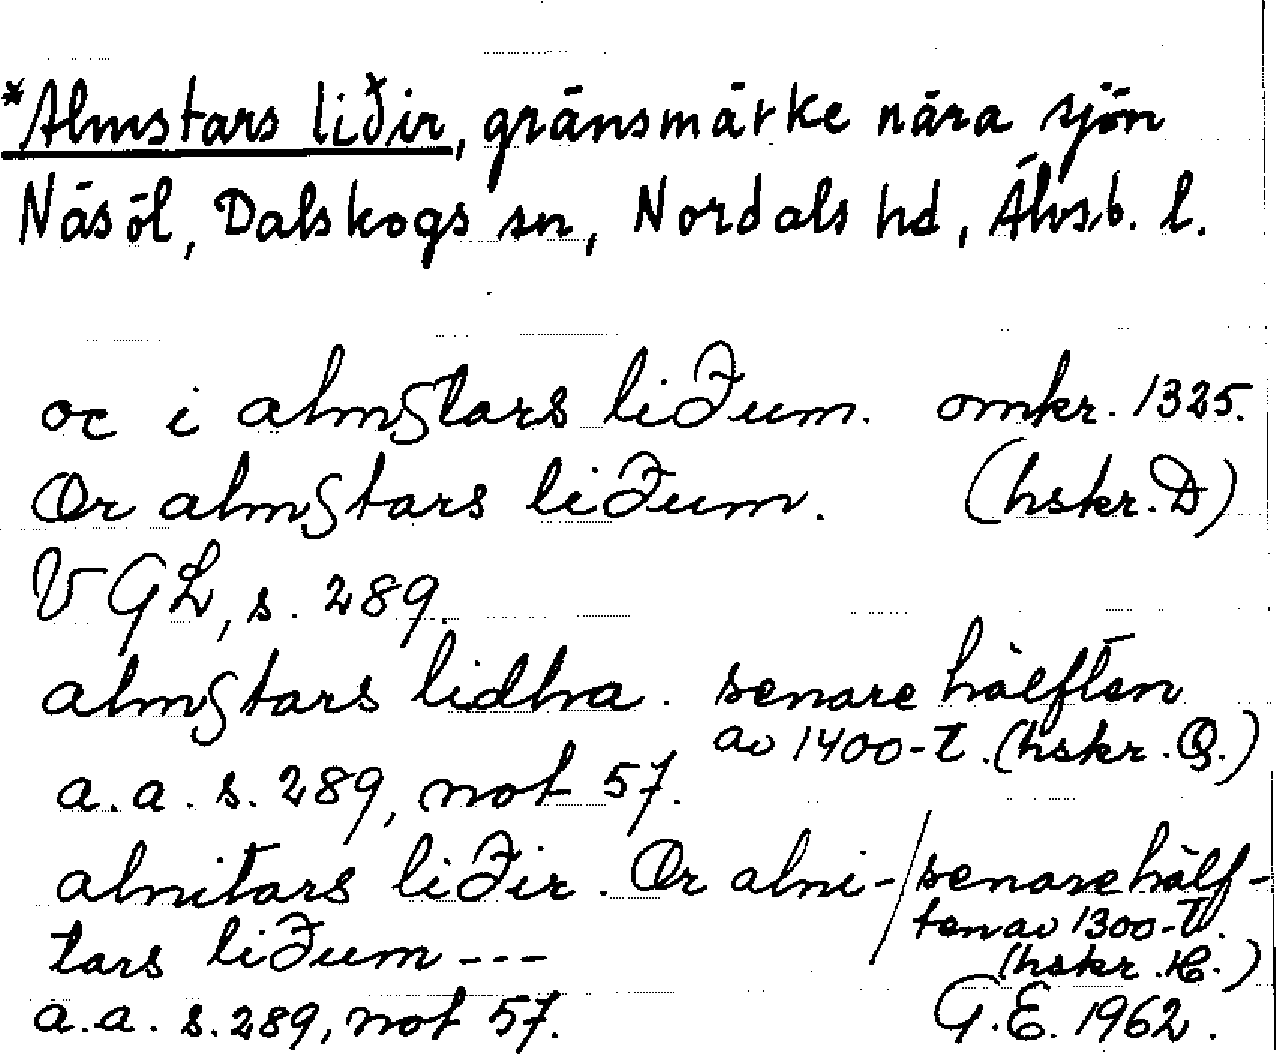 *Almstars liðir, gränsmärke nära sjön
Näsöl, Dalskogs sn, Nordals hd, Älvsb. l.
oc i almstars liðum. omkr. 1325.
Or almstars liðum. (hskr. D)
VGL, s. 289.
almstars lidha. senare hälften
av 1400-t. (hskr. Q.)
a.a. s. 289, not 57.
alnitars liðir. Or alni-/senare hälf-
tars liðum --- ten av 1300-t.
(hskr. K.)
a.a. s. 289, not 57. G.E. 1962.